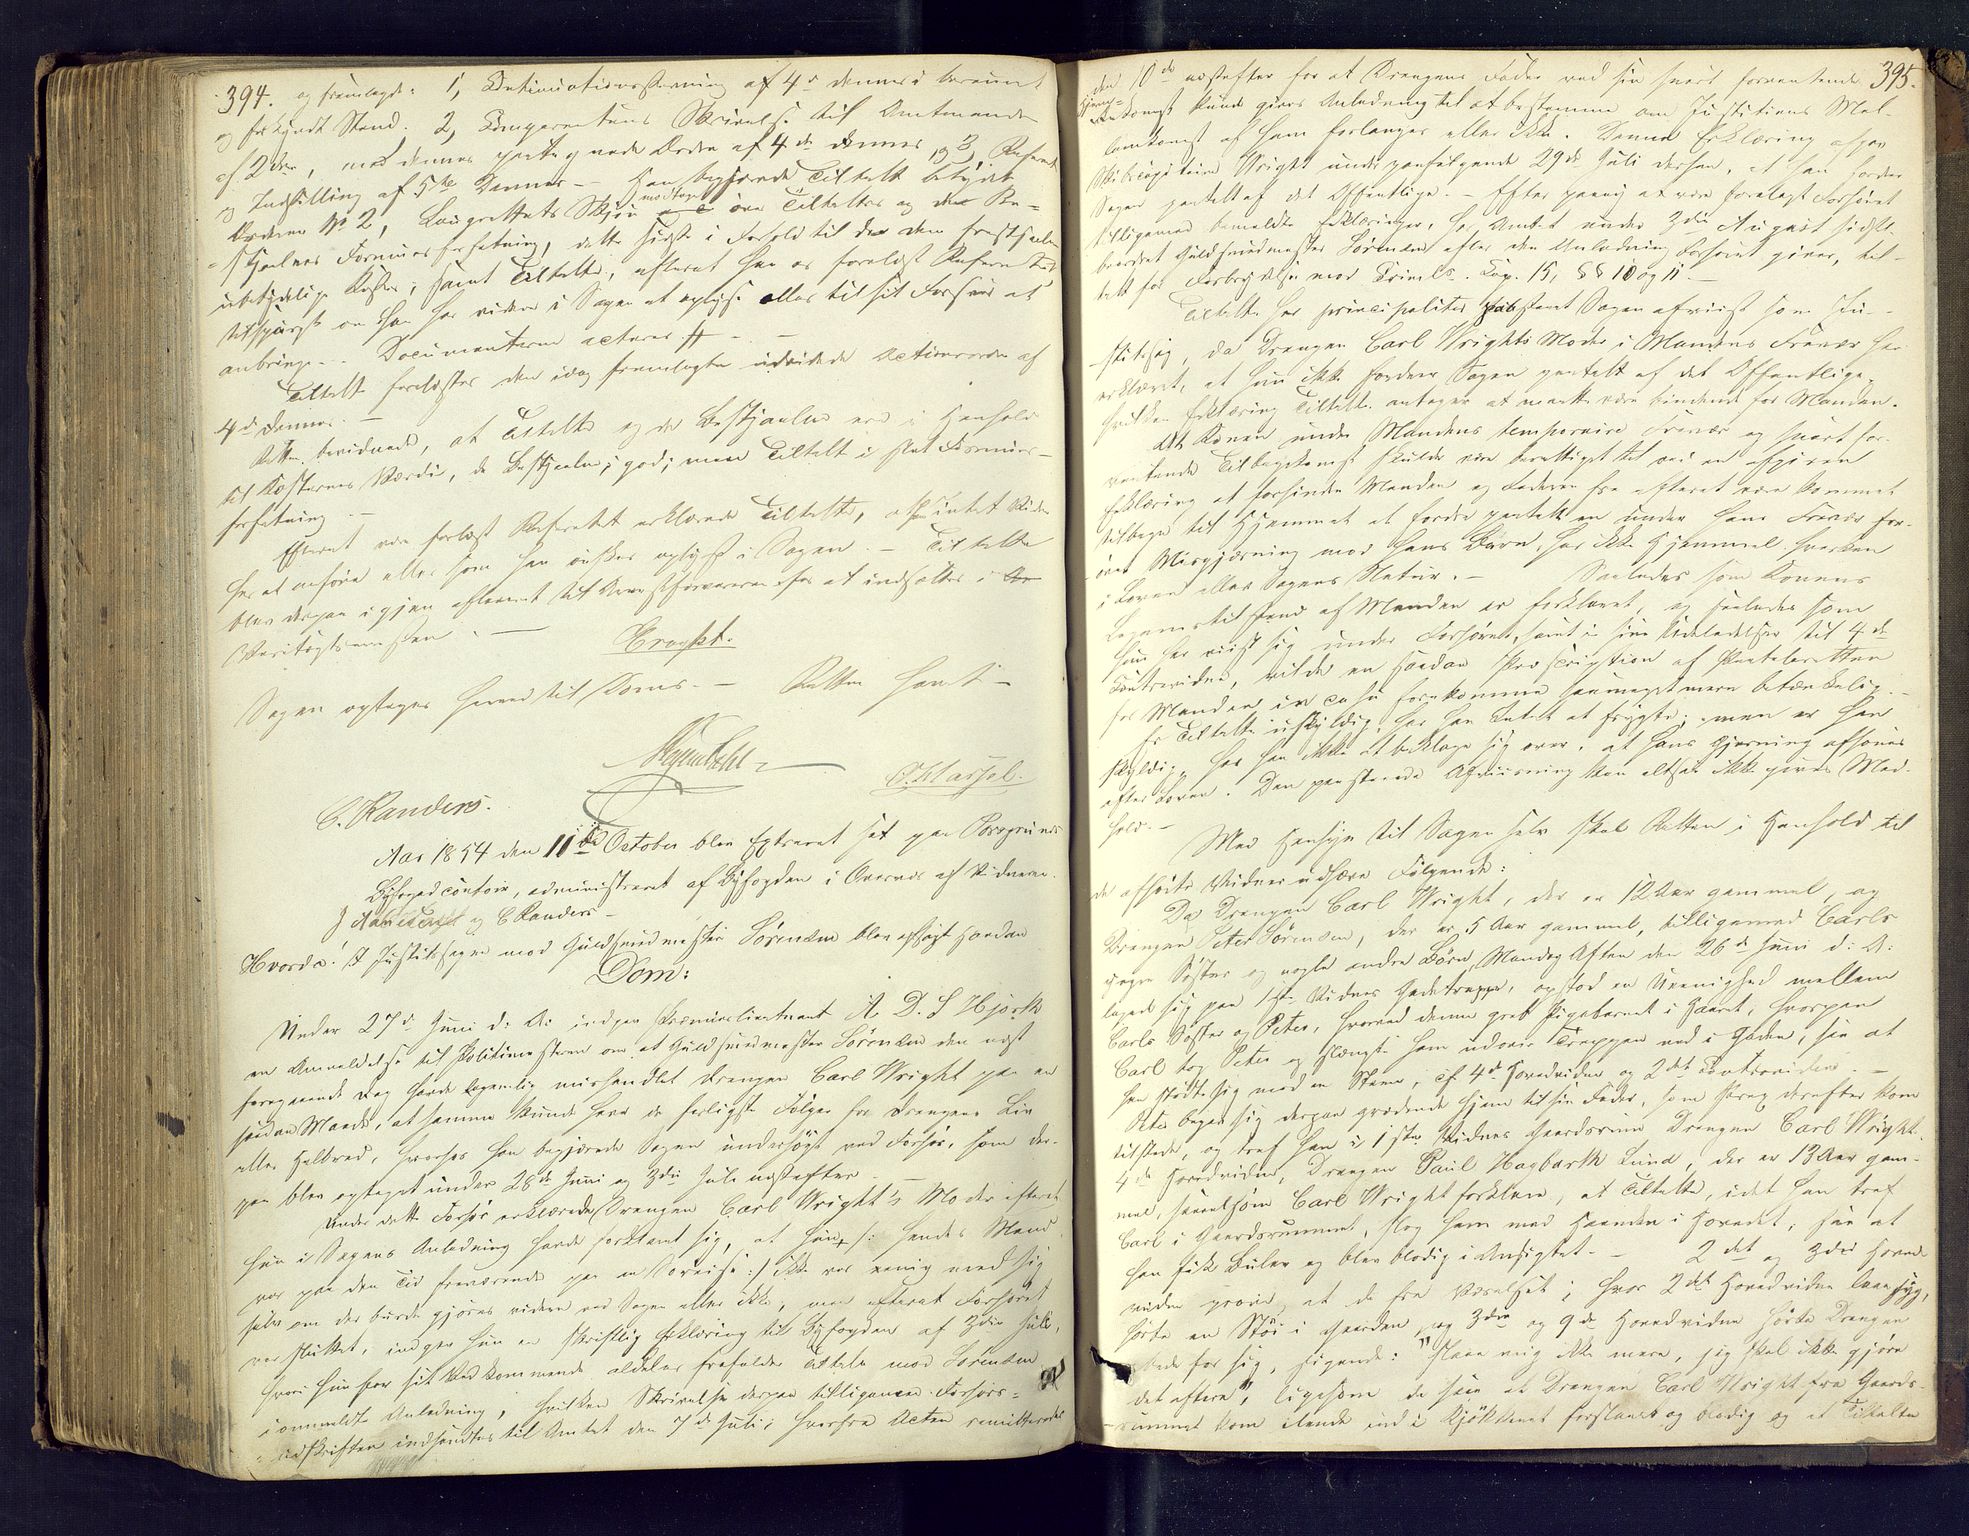 394.
og fremlagde: 1, Continuationsstevning af 4de dennes i beramt
og forkyndt Stand. 2, Comparentens Skrivelse til Amtmanden
af 2den, med dennes paategnede Ordre af 4de dennes og 3, Referat
og Indstilling af 5te Dennes — Han begjærede Tiltalte betydet
Ordren No 2, Laugrettets Skjøn modtaget over Tiltaltes og de Be-
stjaalnes Formuesforfatning, dette sidste i Forhold til de den frastjaalne
ubetydelige Koster; samt Tiltalte, efterat han er forelæst Referatet
tilspurgt om han har videre i Sagen at oplyse eller til sit Forsvar at
anbringe. — Documenterne acteres #. —
Tiltalte forelæstes den idag fremlagte udvidede Actionsordre af
4de dennes. —
Retten bevidnede, at Tiltalte og de Bestjaalne ere i Henhold
til Kosternes Værdi, de Bestjaalne i god; men Tiltalte i slet Formues-
forfatning. —
Efterat være forelæst Referatet erklærede Tiltalte, at han intet Videre
har at anføre eller som han ønsker oplyst i Sagen. — Tiltalte
blev derpaa igjen afleveret til Arrestforvareren for at indsættes i
Varetægtsarresten. —
Eragtet.
Sagen optages herved til Doms. — Retten hævet —
C. Randers.
Aar 1854 den 11te October blev Extraret sat paa Porsgrunds
Byfogedcontoir, administreret af Byfogden i Overvær af Vidnerne
og C Randers —
Hvorda: I Justitssagen mod Guldsmedmester Sørensen blev afsagt saadan
Dom:
Under 27de Juni d: A: indgav Premierlieutnant A. D. S Hjorth
en Anmeldelse til Politimesteren om, at Guldsmedmester Sørensen den næst
foregaaende Dag havde legemlig mishandlet Drengen Carl Wright paa en
saadan Maade, at samme kunde have de farligste Følger for Drengens Liv
eller Helbred, hvorfor han begjærede Sagen undersøgt ved Forhør, som der-
paa blev optaget under 28de Juni og 3die Juli næstefter. —
Under dette Forhør erklærede Drengen Carl Wright's Moder efterat
hun i Sagens Anledning havde forklaret sig, at hun /: hendes Mand
var paa den Tid fraværende paa en Søreise :/ ikke var enig med sig
selv om der burde gjøres videre ved Sagen eller ikke, men efterat Forhøret
var sluttet, indgav hun en skriftlig Erklæring til Byfogden af 3die Juli,
hvori hun for sit Vedkommende aldeles frafalder Tiltale mod Sørensen
i ommeldte Anledning, hvilken Skrivelse derpaa tilligemed Forhørs-
udskriften indsendtes til Amtet den 7de Juli; hvorfra Acten remitteredes
395.
den 10de næstefter for at Drengens Fader ved sin snart forventende
Hjem-
komst kunde gives Anledning til at bestemme om Justitiens Med-
komst af ham forlanges eller ikke. Denne Erklæring afgav
Skibscapitain Wright under paafølgende 29de Juli derhen, at han fordrer
Sagen paatalt af det Offentlige. — Efter paany at være forelagt Forhøret
tilligemed bemeldte Erklæringer, har Amtet under 3die August sidstl.
beordret Guldsmedmester Sørensen efter den Anledning Forhøret giver, til-
talt for Forbrydelse mod Crimls. Cap. 15, §§ 10 og 11 —
Tiltalte har principaliter paastaaet Sagen afviist som Ju-
stitssag, da Drengen Carl Wrights Moder i Mandens Fravær har
erklæret, at hun ikke fordrer Sagen paatalt af det Offentlige,
hvilken Erklæring Tiltalte antager at maatte være bindende for Manden.
At Konen under Mandens temporaire Fravær og snart for-
ventende Tilbagekomst skulde være berettiget til ved en afgiven
Erklæring at forhindre Manden og Faderen fra efterat være kommet
tilbage til Hjemmet at fordre paatalt en under hans Fravær for-
øvet Misgjerning mod hans Barn, har ikke Hjemmel hverken
i Loven eller Sagens Natur. — Saaledes som Konens
Legemstilstand af Manden er forklaret, og saaledes som
hun har viist sig under Forhøret, samt i sine Udeladelser til 4de
Contravidne, vilde en saadan Præscription af Paataleretten
for Manden in casu forekomme saameget mere betænkelig. —
Er Tiltalte uskyldig, har han Intet at frygte; men er han
skyldig, har han ikke at beklage sig over, at hans Gjerning afsones
efter Loven. Den paastaaede Afviisning kan altsaa ikke gives Med-
hold. —
Med Hensyn til Sagen selv skal Retten i Henhold til
de afhørte Vidner udhæve Følgende:
Da Drengen Carl Wright, der er 12 Aar gammel, og
Drengen Peter Sørensen, der er 5 Aar gammel, tilligemed Carls
yngre Søster og nogle andre Børn Mandag Aften den 26de Juni d: A:
legede sig paa 1ste Vidnes Gadetrappe, opstod en Uenighed mellem
Carls Søster og Peter, hvorved denne greb Pigebarnet i Haaret, hvorpaa
Carl tog Peter og slængte ham udover Trappen ned i Gaden, saa at
han stødte sig mod en Steen, cf 4de Hovedvidne og 2det Contravidne. —
Peter begav sig derpaa grædende hjem til sin Fader, som strax derefter kom
tilstede, og traf han i 1ste Vidnes Gaardsrum Drengen Carl Wright.
4de Hovedvidne, Drengen Paul Hagbarth Lund, der er 13 Aar gam-
mel, saavelsom Carl Wright forklare, at Tiltalte, idet han traf
Carl i Gaardsrummet, slog ham med Haanden i Hovedet, saa at
han fik Buler og blev blodig i Ansigtet. — 2det og 3die Hoved-
vidne prove at de fra Værelset, hvor 2det Hovedvidne laae syg,
hørte en Støi i Gaarden, og 3die og 9de Hovedvidne hørte Drengen
bede for sig, sigende: "slaae mig ikke mere, jeg skal ikke gjøre
det oftere", ligesom de saae at Drengen Carl Wright fra Gaards-
rummet kom ilende ind i Kjøkkenet forslaaet og blodig og at Tiltalte